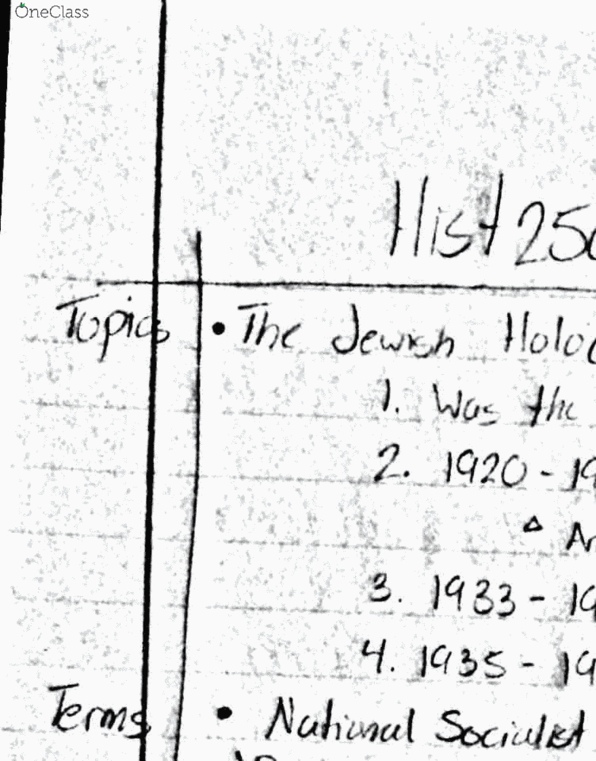 OneClass
Hist 250
Topics • The Jewish Holoc
1. Was the
2. 1920 - 19
△ Ar
3. 1933 - 19
4. 1935 - 19
Terms • National Socialist